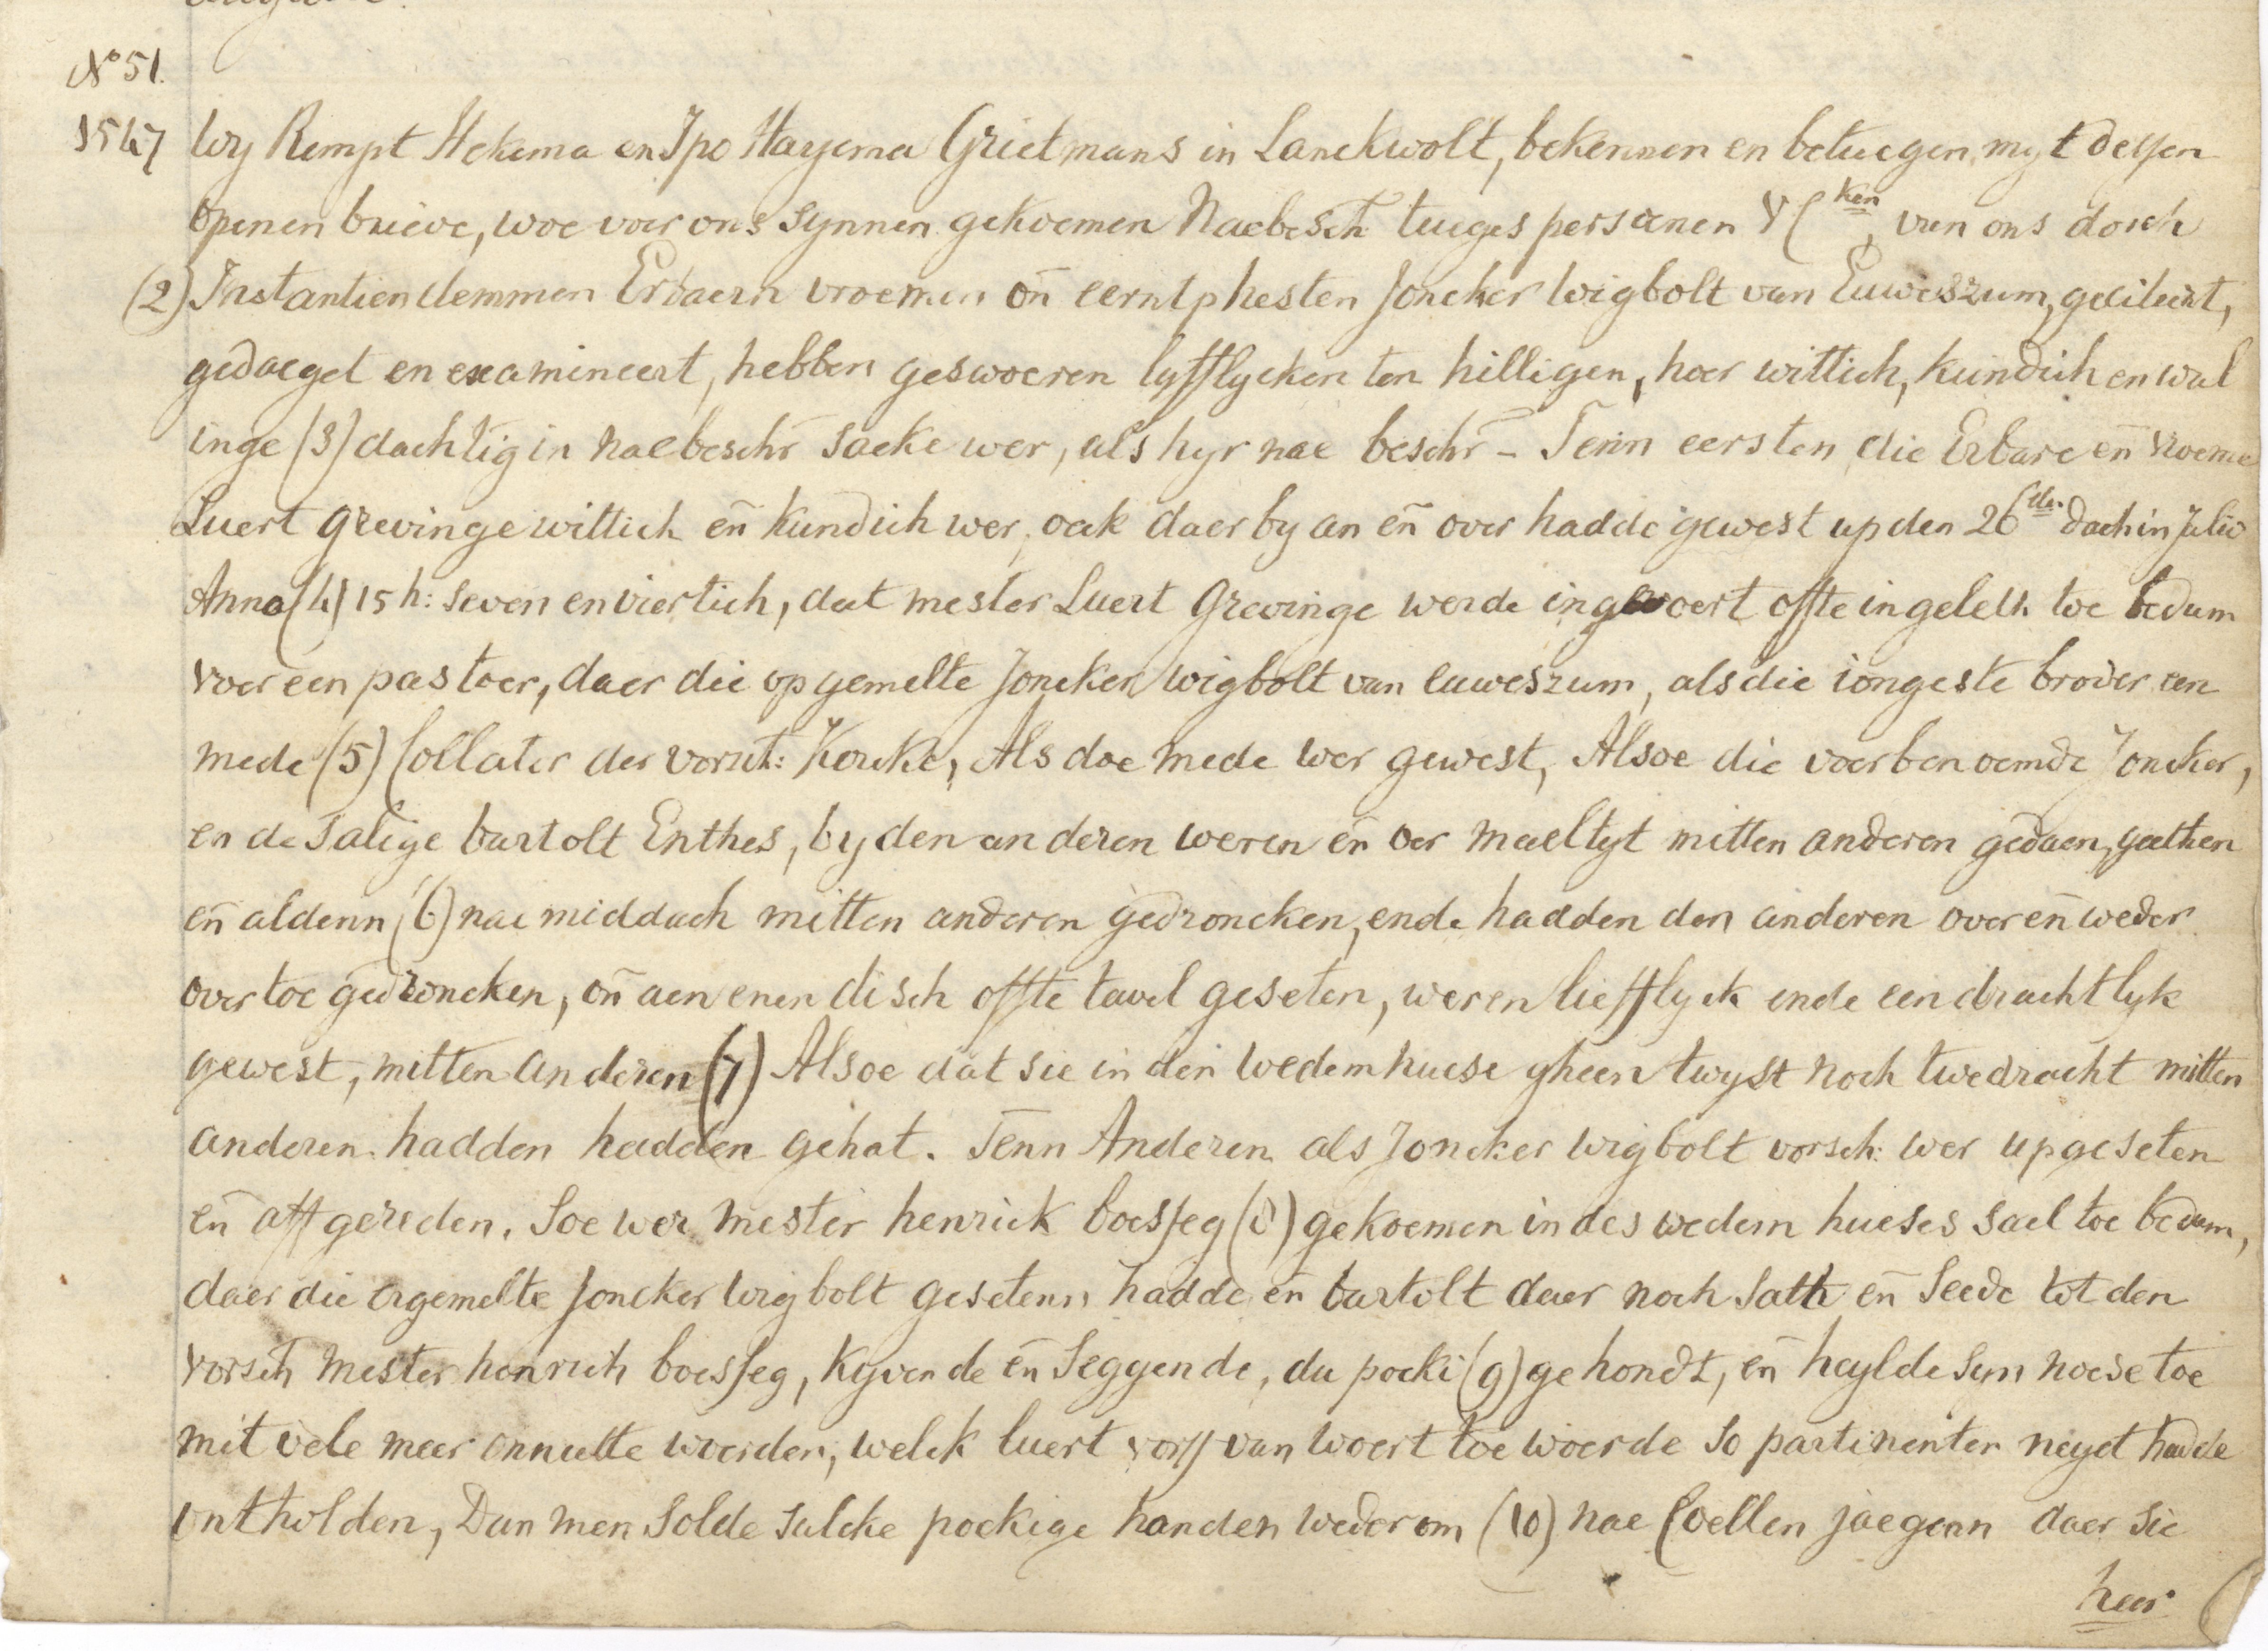 No 51.
1547 Wy Rempt Hekema en Ipo Hayema Grietmans in Lanckwolt, bekennen en betuegen myt dessen
openen brieve, woe voer ons synnen gekoemen Naebesch tueges personen van ons dorch
(2) Instantien demmen Erbaern vroemen on̄ eerntphesten Joncker Wigbolt van Euweszum, geciteert,
gedaeget en examineert, hebben geswoeren lyfflycken ten hilligen, hoer wittich, kundich en wal
inge (3) dachtig in naebeschr saeke wer, als hyr nae beschr – Tenn eersten die Erbare en̄ vroeme
Luert Grevinge wittich en̄ kundich wer, oek daer by an en̄ over hadde gewest up den 26ten dach in Julio
Anno (4) 15 h: seven en viertich, dat mester Luert Grevinge werde ingevoert offte ingeleth toe bedum
voer een pastoer, daer die opgemelte Joncker Wigbolt van euweszum, als die iongeste broder een
mede (5) Collator der vorsch: Kercke, Als doe mede wer gewest, Alsoe die voerbenoemde Joncker,
en de salige bartolt Enthes, by den anderen weren en̄ oer maeltyt mitten anderen gedaen, geethen
en̄ aldenn (6) nae middach mitten anderen gedroncken, ende hadden den anderen over en̄ weder
over toe gedroncken, on̄ aen enen disch offte tavel geseten, weren liefflyck ende eendrachtlyk
gewest, mitten anderen (7) Alsoe dat sie in den wedemhuese gheen twyst noch twedracht mitten
anderen hadden hadden gehat. Tenn Anderen als Joncker Wigbolt vorsch: wer upgeseten
en̄ affgereden. Soe wer mester henrick boesseg (8) gekoemen in des wedem hueses sael toe bedum,
daer die ergemelte Joncker Wigbolt gesetenn hadde en̄ bartolt daer noch sath en̄ seede tot den
vorsch mester henrich boesseg, kyvende en̄ seggende, du pocki (9) ge hondt, en̄ heylde syn noese toe
mit vele meer onnutte woerden, welck luert vorss van woert toe woerde so partinenter neyet hadde
ontholden, Dan men solde sulcke pockige honden wederom (10) nae Coellen jaegenn daer sie
heer